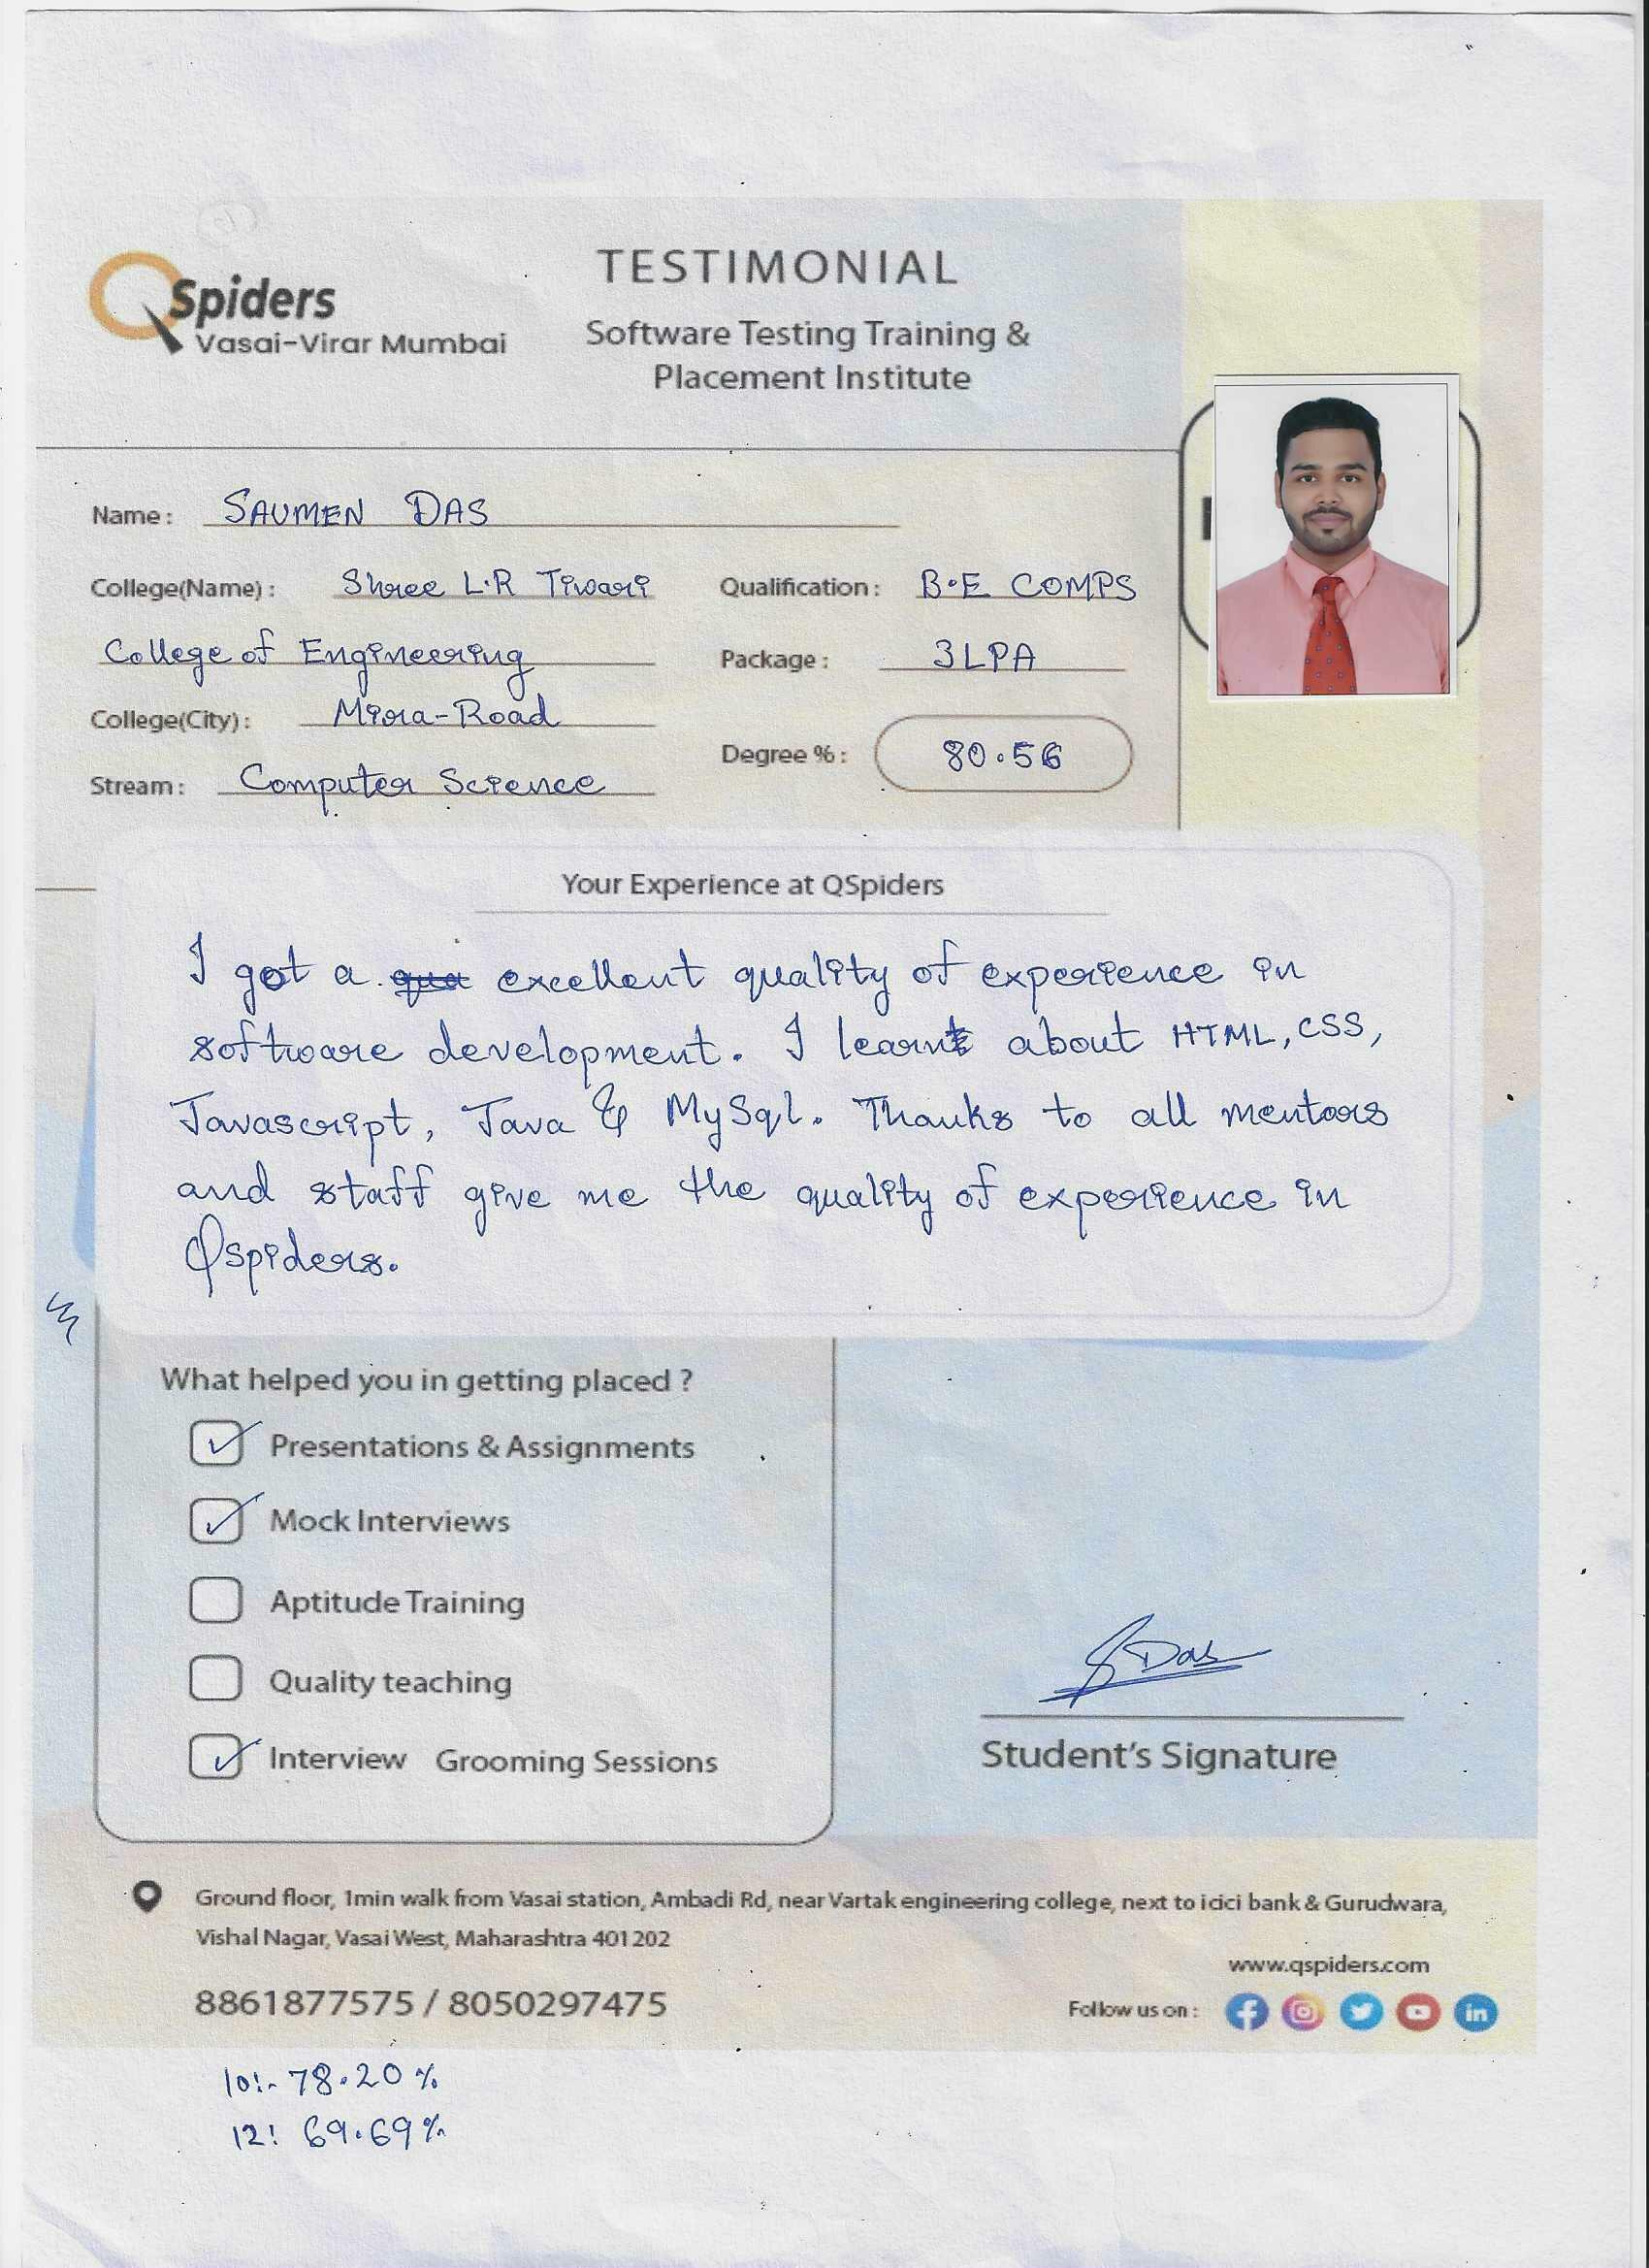 QSpiders
Vasai-Virar Mumbai
TESTIMONIAL
Software Testing Training &
Placement Institute
Name: SAUMEN DAS
College(Name): Shree L.R Tiwari
College of Engineering
College(City): Mira-Road
Stream: Computer Science
Qualification: B.E COMPS
Package: 3LPA
Degree %: 80.56
Your Experience at QSpiders
I got a qua excellent quality of experience in
software development. I learnt about HTML, CSS,
Javascript, Java & MySql. Thanks to all mentors
and staff give me the quality of experience in
Qspiders.
What helped you in getting placed ?
Presentations & Assignments
Mock Interviews
Aptitude Training
Quality teaching
Interview Grooming Sessions
SDas
Student's Signature
Ground floor, 1min walk from Vasai station, Ambadi Rd, near Vartak engineering college, next to icici bank & Gurudwara,
Vishal Nagar, Vasai West, Maharashtra 401202
www.qspiders.com
8861877575 / 8050297475
Follow us on :
10:- 78.20 %
12: 69.69%